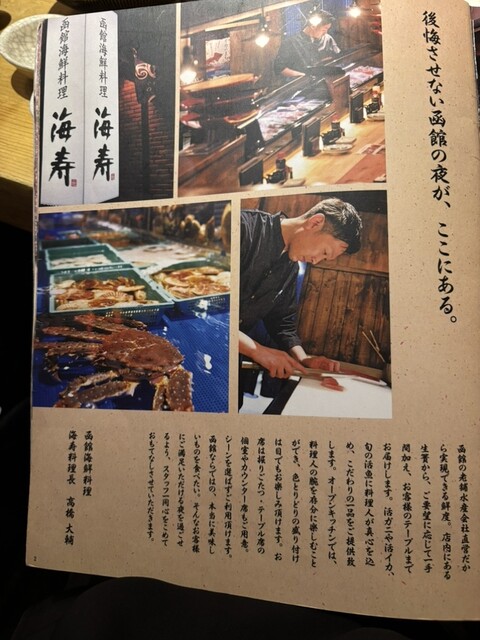 後悔させない函館の夜が、ここにある。
函館海鮮料理
海寿
函館海鮮料理
海寿
函館の老舗水産会社直営だか
ら実現できる鮮度。店内にある
生簀から、ご要望に応じて一手
間加え、お客様のテーブルまで
お届けします。活ガニや活イカ、
旬の活魚に料理人が真心を込
め、こだわりの一品をご提供致
します。オープンキッチンでは、
料理人の腕を存分に楽しむこと
ができ、色とりどりの盛り付け
は目でもお楽しみ頂けます。お
席は掘りごたつ・テーブル席の
個室やカウンター席もご用意。
シーンを選ばずご利用頂けます。
函館ならではの、本当に美味し
いものを食べたい。そんなお客様
にご満足いただける夜を過ごせ
るよう、スタッフ一同心をこめて
おもてなしさせていただきます。
函館海鮮料理
海寿料理長 高橋 大輔